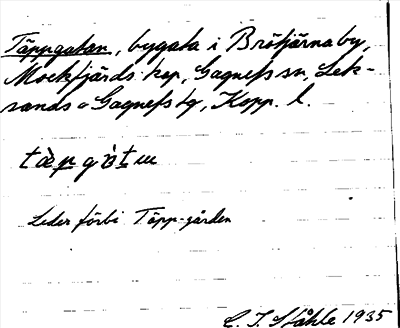 Täppgatan, bygata i Brötjärna by,
Mockfjärds kap, Gagnefs sn, Lek-
sands o Gagnefs tg, Kopp. l.
Leder förbi Täpp-gården
C. I. Ståhle 1935